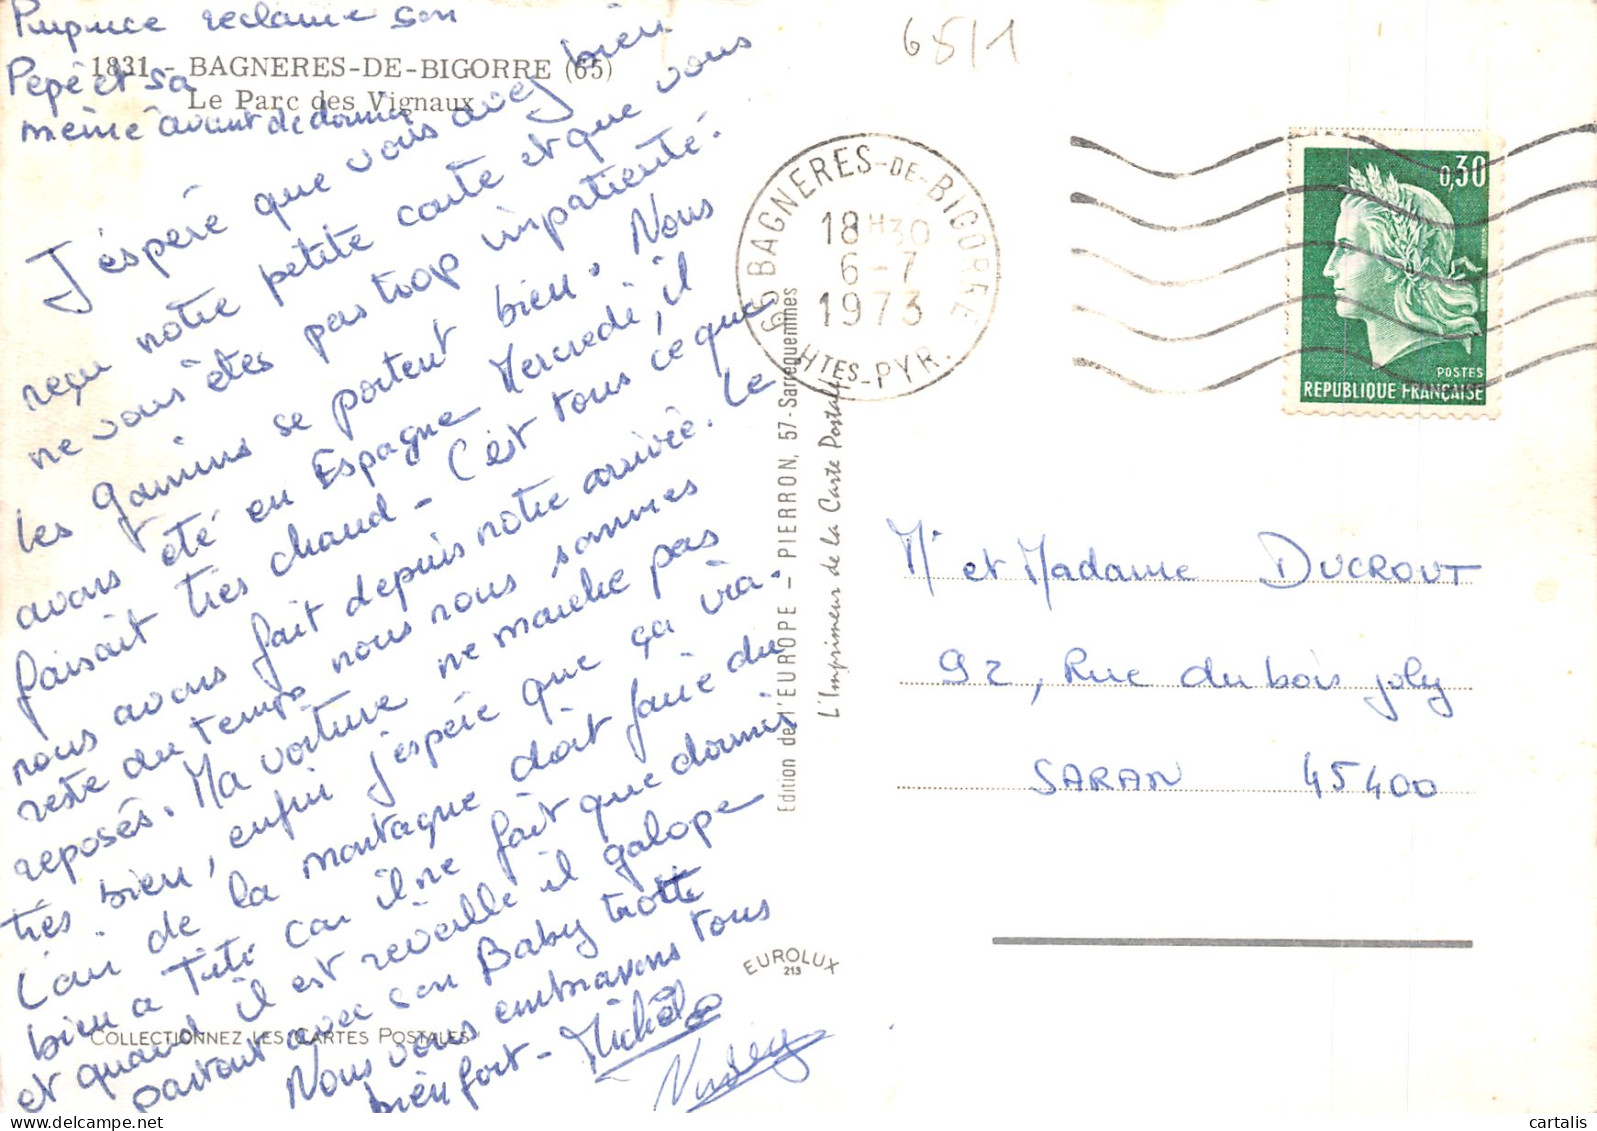 Pupuce reclame son
Pépé et sa
mémé avant de dormir
1831 - BAGNERES-DE-BIGORRE (65)
Le Parc des Vignaux
J'éspère que vous avez bien
reçu notre petite carte et que vous
ne vous êtes pas trop impatienté.
Les gamins se portent bien. Nous
avons été en Espagne Mercredi, il
faisait très chaud - C'est tous ce que
nous avons fait depuis notre arrivée. Le
reste du temps nous nous sommes
reposés. Ma voiture ne marche pas
très bien, enfin j'espère que ça ira.
L'air de la montagne doit faire du
bien a Titi car il ne fait que dormir
et quand il est reveillé il galope
partout avec son Baby trotte
Nous vous embrassons tous
bien fort - Michèle
65/1
66 BAGNERES-DE-BIGORRE
18H30
6-7
1973
HTES-PYR.
0,30
POSTES
REPUBLIQUE FRANÇAISE
Edition de l'EUROPE - PIERRON, 57 - Sarreguemines
L'Imprimeur de la Carte Postale
Mr et Madame DUCROUT
92, Rue du bois joly
SARAN 45400
EUROLUX
213
COLLECTIONNEZ LES CARTES POSTALES
cartalis